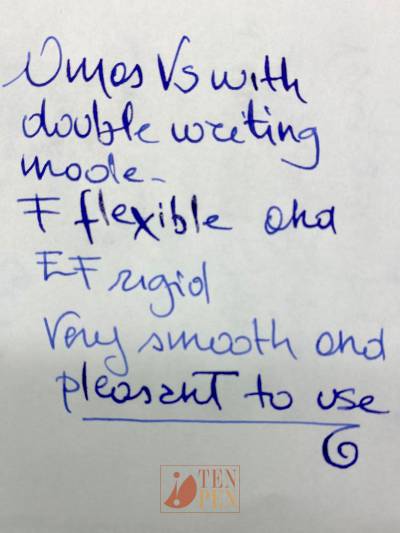 Omas VS with
double writing
mode-
F flexible and
EF rigid
Very smooth and
pleasant to use
TEN
PEN